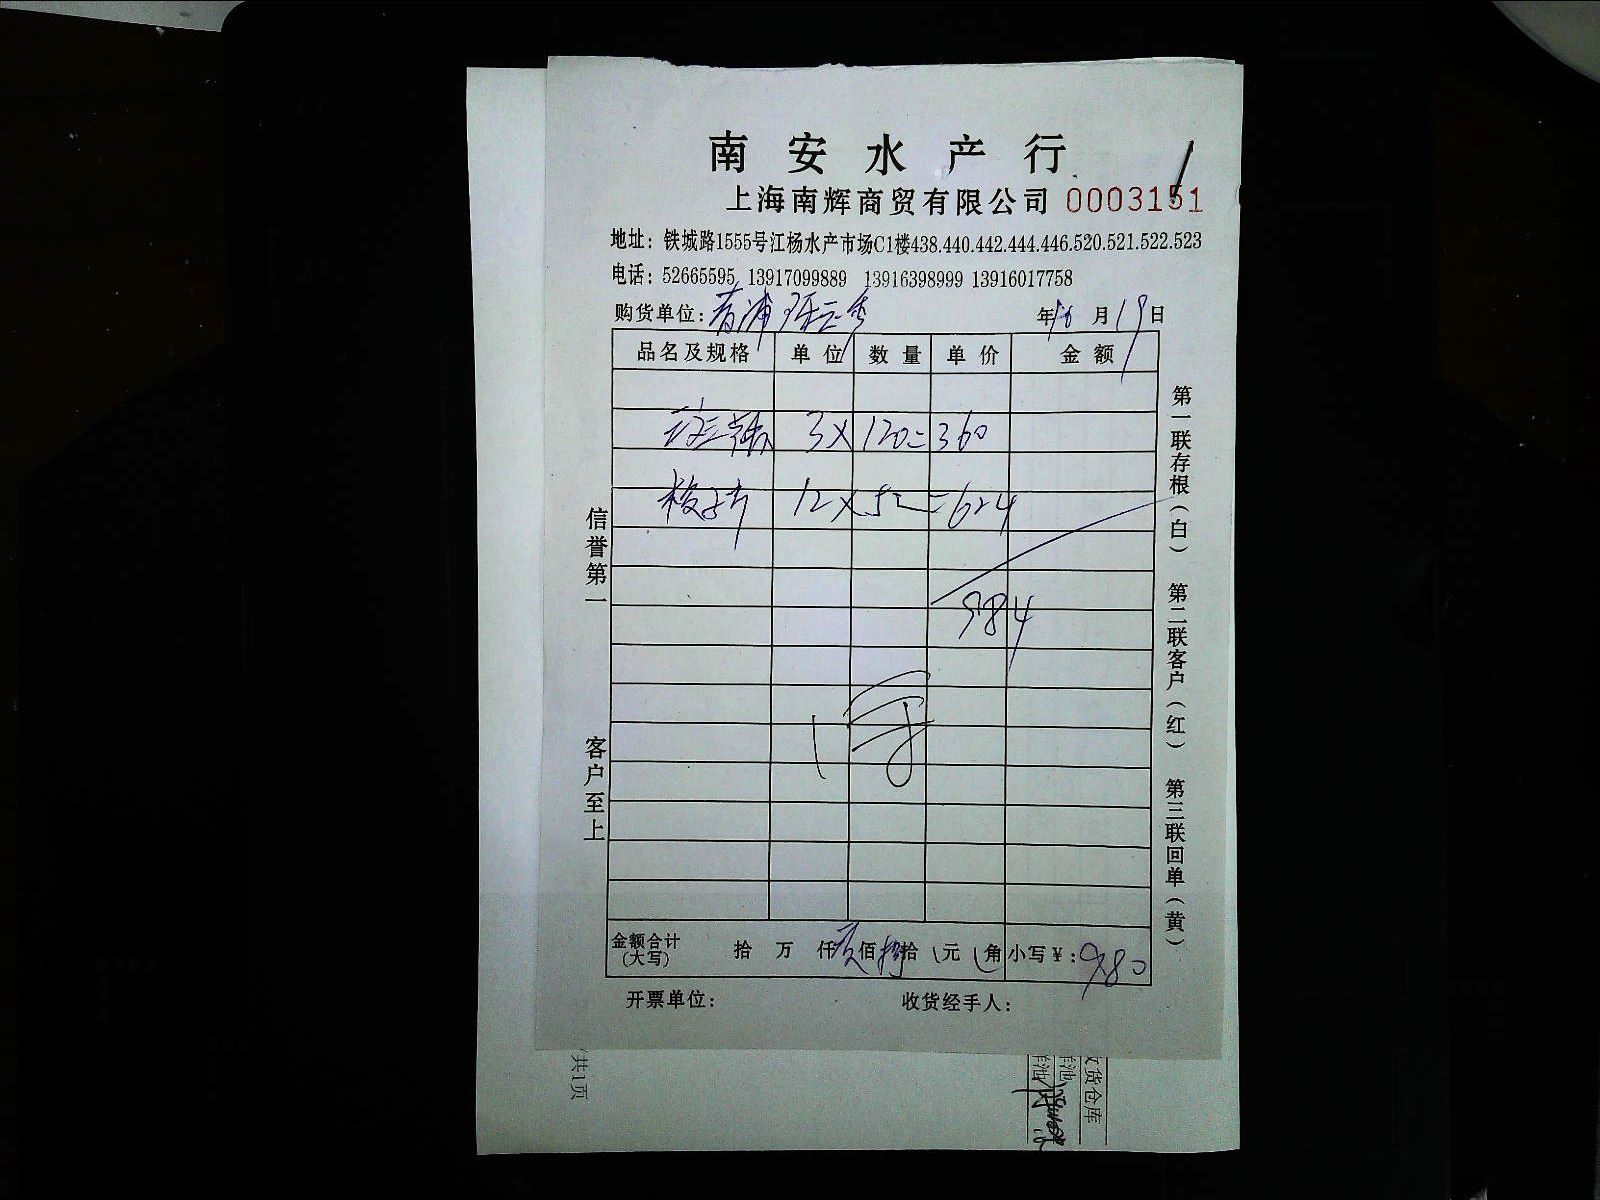 南安水产行
上海南辉商贸有限公司 0003151
地址：铁城路1555号江杨水产市场C1楼438.440.442.444.446.520.521.522.523
电话：52665595 13917099889 13916398999 13916017758
购货单位：青浦 年 月19日
品名及规格 单位 数量 单价 金额
3×120=360
梭子 12×52=624
984
信誉第一
客户至上
第一联存根（白） 第二联客户（红） 第三联回单（黄）
金额合计（大写） 拾 万 仟 佰 拾 元 角 小写￥：980
开票单位： 收货经手人：
共1页
收货仓库